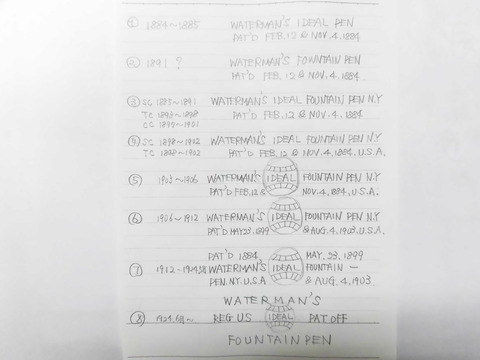 ① 1884~1885 WATERMAN'S IDEAL PEN
PAT'D FEB, 12 & NOV. 4, 1884
② 1891 ? WATERMAN'S FOUNTAIN PEN
PAT'D FEB, 12 & NOV. 4, 1884.
③ SC 1885~1891 WATERMAN'S IDEAL FOUNTAIN PEN N.Y
TC 1893~1898 PAT'D FEB, 12 & NOV. 4, 1884
CC 1899~1901
④ SC 1898~1912 WATERMAN'S IDEAL FOUNTAIN PEN N.Y
TC 1898~1902 PAT'D FEB, 12 & NOV. 4, 1884. U.S.A.
⑤ 1903~1906 WATERMAN'S IDEAL FOUNTAIN PEN N.Y
PAT'D FEB, 12 & NOV. 4, 1884, U.S.A.
⑥ 1906~1912 WATERMAN'S IDEAL FOUNTAIN PEN N.Y
PAT'D MAY 23, 1899 & AUG. 4, 1903, U.S.A.
PAT'D 1884, MAY, 23, 1899
⑦ 1912~1924 WATERMAN'S IDEAL FOUNTAIN —
PEN. N.Y. U.S.A & AUG. 4, 1903
WATERMAN'S
⑧ 1924 REG US IDEAL PAT OFF
FOUNTAIN PEN